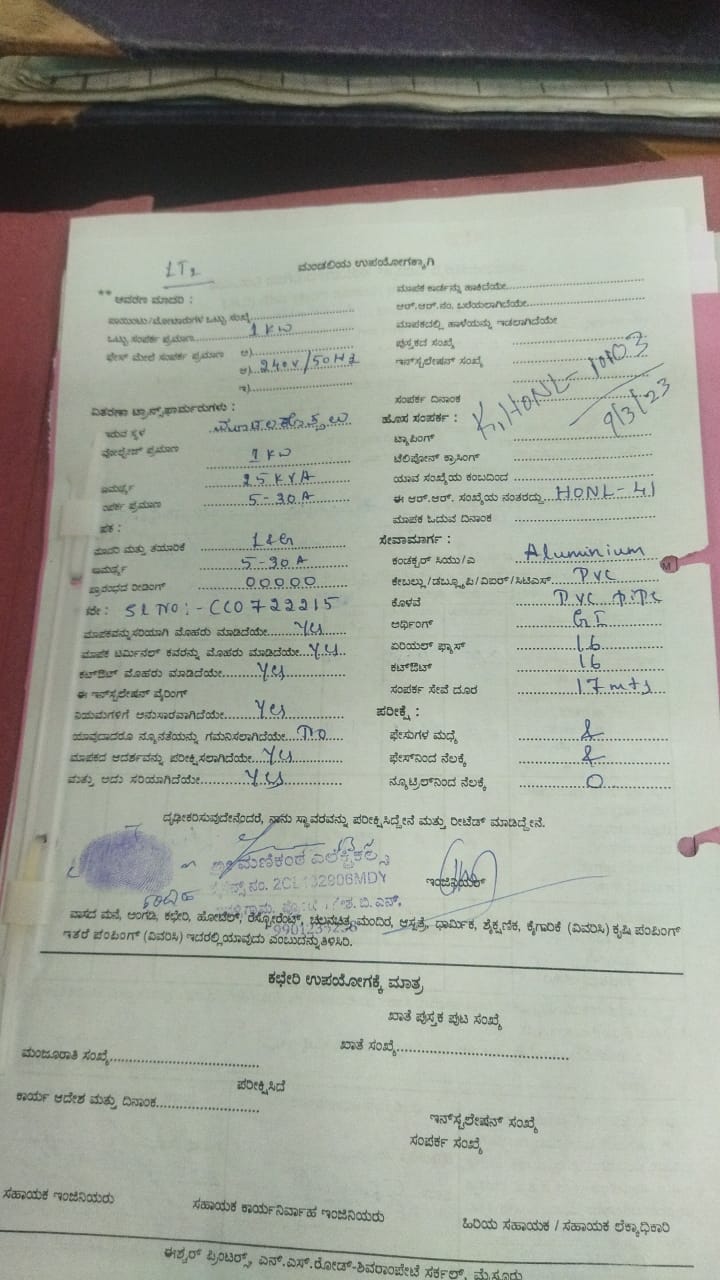 LT2
ಮಂಡಲಿಯ ಉಪಯೋಗಕ್ಕಾಗಿ
** ಆವರಣ ಮಾದರಿ :
ಪಾಯಿಂಟು/ಮೋಟಾರುಗಳ ಒಟ್ಟು ಸಂಖ್ಯೆ
ಒಟ್ಟು ಸಂಪರ್ಕ ಪ್ರಮಾಣ 1 KW
ಫೇಸ್ ಮೇಲೆ ಸಂಪರ್ಕ ಪ್ರಮಾಣ ಅ)
ಆ) 240V/50HZ
ಇ)
ವಿತರಣಾ ಟ್ರಾನ್ಸ್‌ಫಾರ್ಮರುಗಳು :
ಇರುವ ಸ್ಥಳ
ವೋಲ್ಟೇಜ್ ಪ್ರಮಾಣ 1 KW
ಸಾಮರ್ಥ್ಯ 25 KVA
ಸಂಪರ್ಕ ಪ್ರಮಾಣ 5-30A
ಮಾಪಕ :
ಮಾದರಿ ಮತ್ತು ತಯಾರಿಕೆ L&G
ಸಾಮರ್ಥ್ಯ 5-30A
ಪ್ರಾರಂಭದ ರೀಡಿಂಗ್ 00000
SL NO:- CC0722215
ಮಾಪಕವನ್ನು ಸರಿಯಾಗಿ ಮೊಹರು ಮಾಡಿದೆಯೇ Yes
ಮಾಪಕ ಟರ್ಮಿನಲ್ ಕವರನ್ನು ಮೊಹರು ಮಾಡಿದೆಯೇ Yes
ಕಟ್‌ಔಟ್ ಮೊಹರು ಮಾಡಿದೆಯೇ Yes
ಈ ಇನ್‌ಸ್ಟಲೇಷನ್ ವೈರಿಂಗ್
ನಿಯಮಗಳಿಗೆ ಅನುಸಾರವಾಗಿದೆಯೇ Yes
ಯಾವುದಾದರೂ ನ್ಯೂನತೆಯನ್ನು ಗಮನಿಸಲಾಗಿದೆಯೇ No
ಮಾಪಕದ ಆದರ್ಶವನ್ನು ಪರೀಕ್ಷಿಸಲಾಗಿದೆಯೇ Yes
ಮತ್ತು ಅದು ಸರಿಯಾಗಿದೆಯೇ Yes
ಮಾಪಕ ಕಾರ್ಡನ್ನು ಹಾಕಿದೆಯೇ
ಆರ್.ಆರ್.ನಂ. ಬರೆಯಲಾಗಿದೆಯೇ
ಮಾಪಕದಲ್ಲಿ ಹಾಳೆಯನ್ನು ಇಡಲಾಗಿದೆಯೇ
ಪುಸ್ತಕದ ಸಂಖ್ಯೆ
ಇನ್‌ಸ್ಟಲೇಷನ್ ಸಂಖ್ಯೆ
ಸಂಪರ್ಕ ದಿನಾಂಕ
9/3/23
ಹೊಸ ಸಂಪರ್ಕ :
ಟ್ಯಾಪಿಂಗ್
ಟೆಲಿಫೋನ್ ಕ್ರಾಸಿಂಗ್
ಯಾವ ಸಂಖ್ಯೆಯ ಕಂಬದಿಂದ
ಈ ಆರ್.ಆರ್. ಸಂಖ್ಯೆಯ ನಂತರದ್ದು HONL-41
ಮಾಪಕ ಓದುವ ದಿನಾಂಕ
ಸೇವಾಮಾರ್ಗ :
ಕಂಡಕ್ಟರ್ ಸಿಯು/ಎ Aluminium
ಕೇಬಲ್ಲು/ಡಬ್ಲ್ಯೂಪಿ/ವಿಐಆರ್/ಸಿಟಿಎಸ್ PVC
ಕೊಳವೆ PVC Pipe
ಅರ್ಥಿಂಗ್ GI
ಏರಿಯಲ್ ಫ್ಯೂಸ್ 16
ಕಟ್‌ಔಟ್ 16
ಸಂಪರ್ಕ ಸೇವೆ ದೂರ 17 mts
ಪರೀಕ್ಷೆ :
ಫೇಸುಗಳ ಮಧ್ಯೆ
ಫೇಸ್‌ನಿಂದ ನೆಲಕ್ಕೆ
ನ್ಯೂಟ್ರಲ್‌ನಿಂದ ನೆಲಕ್ಕೆ 0
ದೃಢೀಕರಿಸುವುದೇನೆಂದರೆ, ನಾನು ಸ್ಥಾವರವನ್ನು ಪರೀಕ್ಷಿಸಿದ್ದೇನೆ ಮತ್ತು ರೀಟೆಡ್ ಮಾಡಿದ್ದೇನೆ.
ಮಣಿಕಂಠ ಎಲೆಕ್ಟ್ರಿಕಲ್ಸ್
ನಂ. 2CL132906MDY
ಇಂಜಿನಿಯರ್
ವಾಸದ ಮನೆ, ಅಂಗಡಿ, ಕಛೇರಿ, ಹೋಟೆಲ್, ರೆಸ್ಟೋರೆಂಟ್, ಚಲನಚಿತ್ರ ಮಂದಿರ, ಆಸ್ಪತ್ರೆ, ಧಾರ್ಮಿಕ, ಶೈಕ್ಷಣಿಕ, ಕೈಗಾರಿಕೆ (ವಿವರಿಸಿ) ಕೃಷಿ ಪಂಪಿಂಗ್
ಇತರೆ ಪಂಪಿಂಗ್ (ವಿವರಿಸಿ) ಇದರಲ್ಲಿ ಯಾವುದು ಎಂಬುದನ್ನು ತಿಳಿಸಿರಿ.
ಕಛೇರಿ ಉಪಯೋಗಕ್ಕೆ ಮಾತ್ರ
ಖಾತೆ ಪುಸ್ತಕ ಪುಟ ಸಂಖ್ಯೆ
ಮಂಜೂರಾತಿ ಸಂಖ್ಯೆ
ಖಾತೆ ಸಂಖ್ಯೆ
ಪರೀಕ್ಷಿಸಿದೆ
ಕಾರ್ಯ ಆದೇಶ ಮತ್ತು ದಿನಾಂಕ
ಇನ್‌ಸ್ಟಲೇಷನ್ ಸಂಖ್ಯೆ
ಸಂಪರ್ಕ ಸಂಖ್ಯೆ
ಸಹಾಯಕ ಇಂಜಿನಿಯರು
ಸಹಾಯಕ ಕಾರ್ಯನಿರ್ವಾಹ ಇಂಜಿನಿಯರು
ಹಿರಿಯ ಸಹಾಯಕ / ಸಹಾಯಕ ಲೆಕ್ಕಾಧಿಕಾರಿ
ಈಶ್ವರ್ ಪ್ರಿಂಟರ್ಸ್, ಎನ್.ಎಸ್.ರೋಡ್-ಶಿವರಾಂಪೇಟೆ ಸರ್ಕಲ್, ಮೈಸೂರು